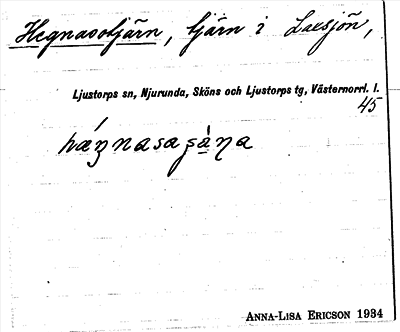 Hegnasotjärn, tjärn i Laxsjön,
Ljustorps sn, Njurunda, Sköns och Ljustorps tg, Västernorrl. l.
45
ANNA-LISA ERICSON 1934